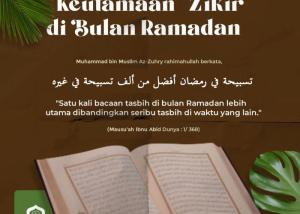 Keutamaan Zikir
di Bulan Ramadan
Muhammad bin Muslim Az-Zuhry rahimahullah berkata,
تسبيحة في رمضان أفضل من ألف تسبيحة في غيره
"Satu kali bacaan tasbih di bulan Ramadan lebih
utama dibandingkan seribu tasbih di waktu yang lain."
(Mausu'ah Ibnu Abid Dunya : 1/ 368)